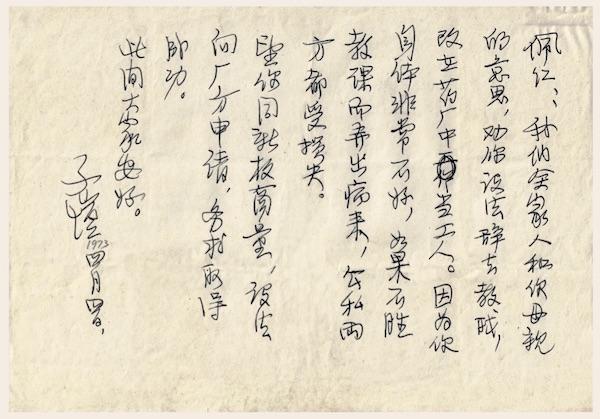 佩仁:我们全家人和你母亲
的意思,劝你设法辞去教职,
改在药厂中当工人。因为你
身体非常不好,如果不胜
教课而弄出病来,公私两
方都受损失。
望你同新枚商量,设法
向厂方申请,务求取得
成功。
此间大家安好。
子恺 1973 四月四日,